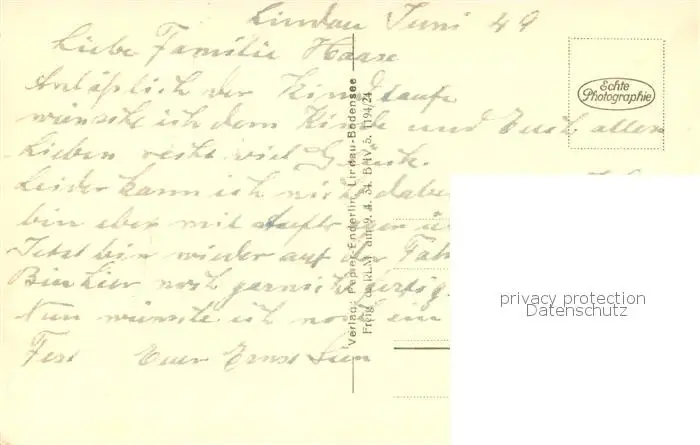 Lindau Juni 49
Liebe Familie Haase
Anläßlich der Kindtaufe
wünsche ich dem Kinde und Euch allen
Lieben recht viel Glück.
Leider kann ich nicht
bin aber mit
Jetzt bin wieder auf der
Bin hier noch garnicht
Nun wünsche ich noch ein
Euer Ernst
Verlag: Pepier-Enderlin, Lindau-Bodensee
Freig. d. RLM. am 9. 4. 34. BHV 5. 1194/24
Echte
Photographie
privacy protection
Datenschutz